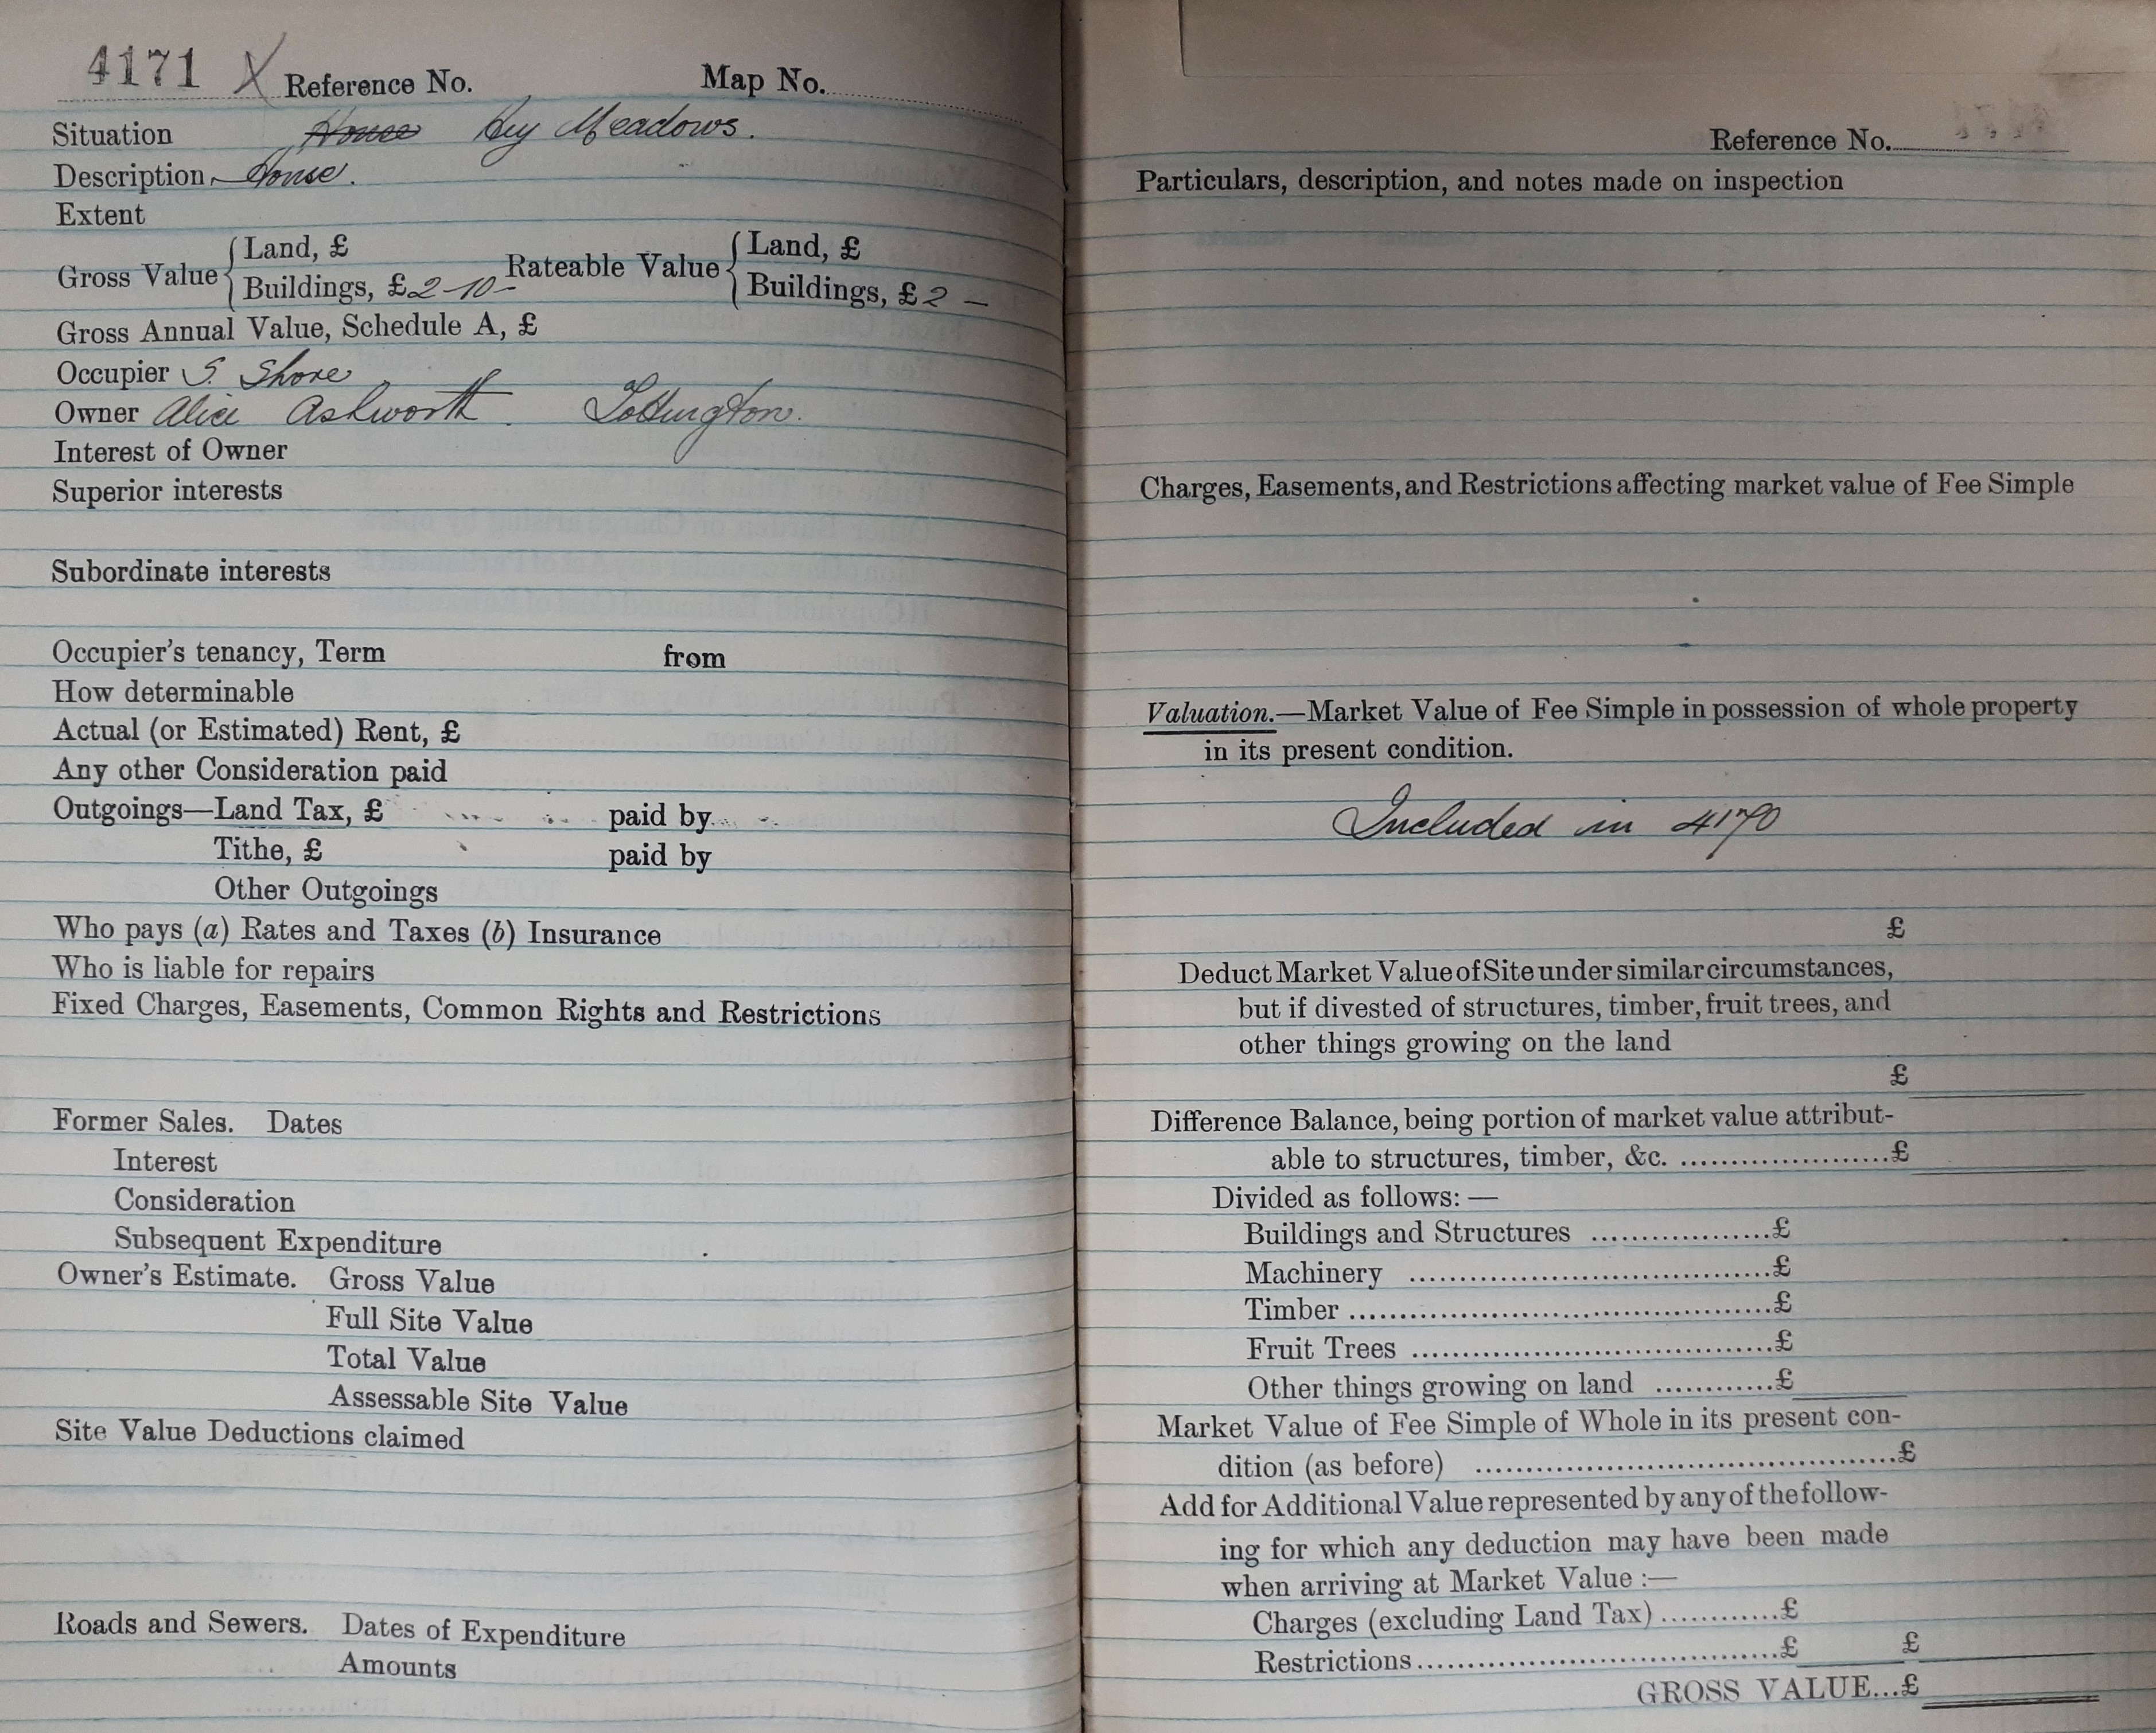 4171 X Reference No. Map No.
Situation House Hey Meadows.
Description House.
Extent
Gross Value { Land, £
Buildings, £ 2-10- Rateable Value { Land, £
Buildings, £ 2 —
Gross Annual Value, Schedule A, £
Occupier S. Shore
Owner Alice Ashworth. Tottington.
Interest of Owner
Superior interests
Subordinate interests
Occupier's tenancy, Term from
How determinable
Actual (or Estimated) Rent, £
Any other Consideration paid
Outgoings—Land Tax, £ paid by
Tithe, £ paid by
Other Outgoings
Who pays (a) Rates and Taxes (b) Insurance
Who is liable for repairs
Fixed Charges, Easements, Common Rights and Restrictions
Former Sales. Dates
Interest
Consideration
Subsequent Expenditure
Owner's Estimate. Gross Value
Full Site Value
Total Value
Assessable Site Value
Site Value Deductions claimed
Roads and Sewers. Dates of Expenditure
Amounts
Reference No.
Particulars, description, and notes made on inspection
Charges, Easements, and Restrictions affecting market value of Fee Simple
Valuation.—Market Value of Fee Simple in possession of whole property
in its present condition.
Included in 4170
£
Deduct Market Value of Site under similar circumstances,
but if divested of structures, timber, fruit trees, and
other things growing on the land
£
Difference Balance, being portion of market value attribut-
able to structures, timber, &c. ......................£
Divided as follows: —
Buildings and Structures ..................£
Machinery ....................................£
Timber ..........................................£
Fruit Trees ...................................£
Other things growing on land ............£
Market Value of Fee Simple of Whole in its present con-
dition (as before) ..........................................£
Add for Additional Value represented by any of the follow-
ing for which any deduction may have been made
when arriving at Market Value :—
Charges (excluding Land Tax) ............£
Restrictions ....................................£ £
GROSS VALUE...£